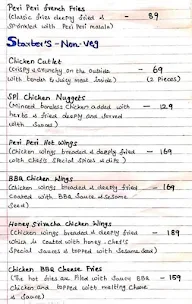 Peri Peri French Fries
(Classic fries deepy fried & - 89
sprinkled with Peri Peri Masala)
Starter's - Non-Veg
Chicken Cutlet
(Crispy & crunchy on the outside - 69
with tendah & juicy meat inside) (2 Pieces)
SPL Chicken Nuggets
(Minced boneless Chicken added with - 129
herbs & fried deepy and served
with sauces)
Peri Peri Hot Wings
(Chicken wings breaded & deeply fried - 169
with chefs Special Spices & dip)
BBQ Chicken Wings
(Chicken wings breaded & deeply fried - 169
Coated with BBQ Sauce & sesame
Seed)
Honey Sriracha Chicken Wings
(Chicken wings breaded & deeply fried - 189
which is coated with honey. Chef's
Special Sauces & topped with Sesame Seed)
Chicken BBQ Cheese Fries
(The hot fries are filled with Sauce BBQ - 159
Chicken and topped with melting Cheese
& Sauce)